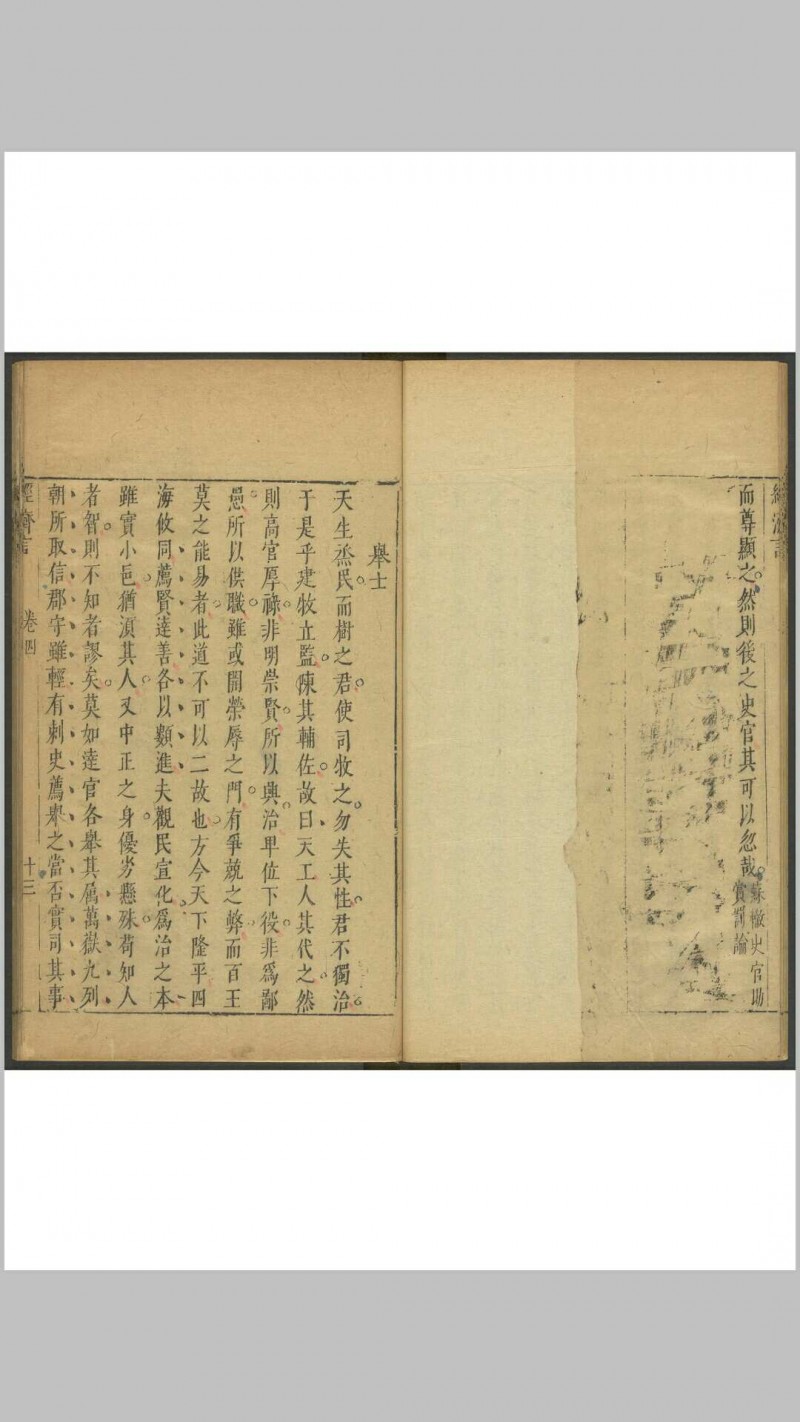 而尊顯之然則後之史官其可以忽哉蘇轍史官助
賞罰論
舉士
天生烝民而樹之君使司牧之勿失其性君不獨治
于是乎建牧立監陳其輔佐故曰天工人其代之然
則高官厚祿非明崇賢所以興治卑位下役非爲鄙
愚所以供職雖或開榮辱之門有爭競之弊而百王
莫之能易者此道不可以二故也方今天下隆平四
海攸同薦賢達善各以類進夫觀民宣化爲治之本
雖實小邑猶須其人又中正之身優劣懸殊苟知人
者智則不知者謬矣莫如達官各舉其屬萬嶽九列
朝所取信郡守雖輕有刺史薦舉之當否實司其事
經濟言
卷四
十三